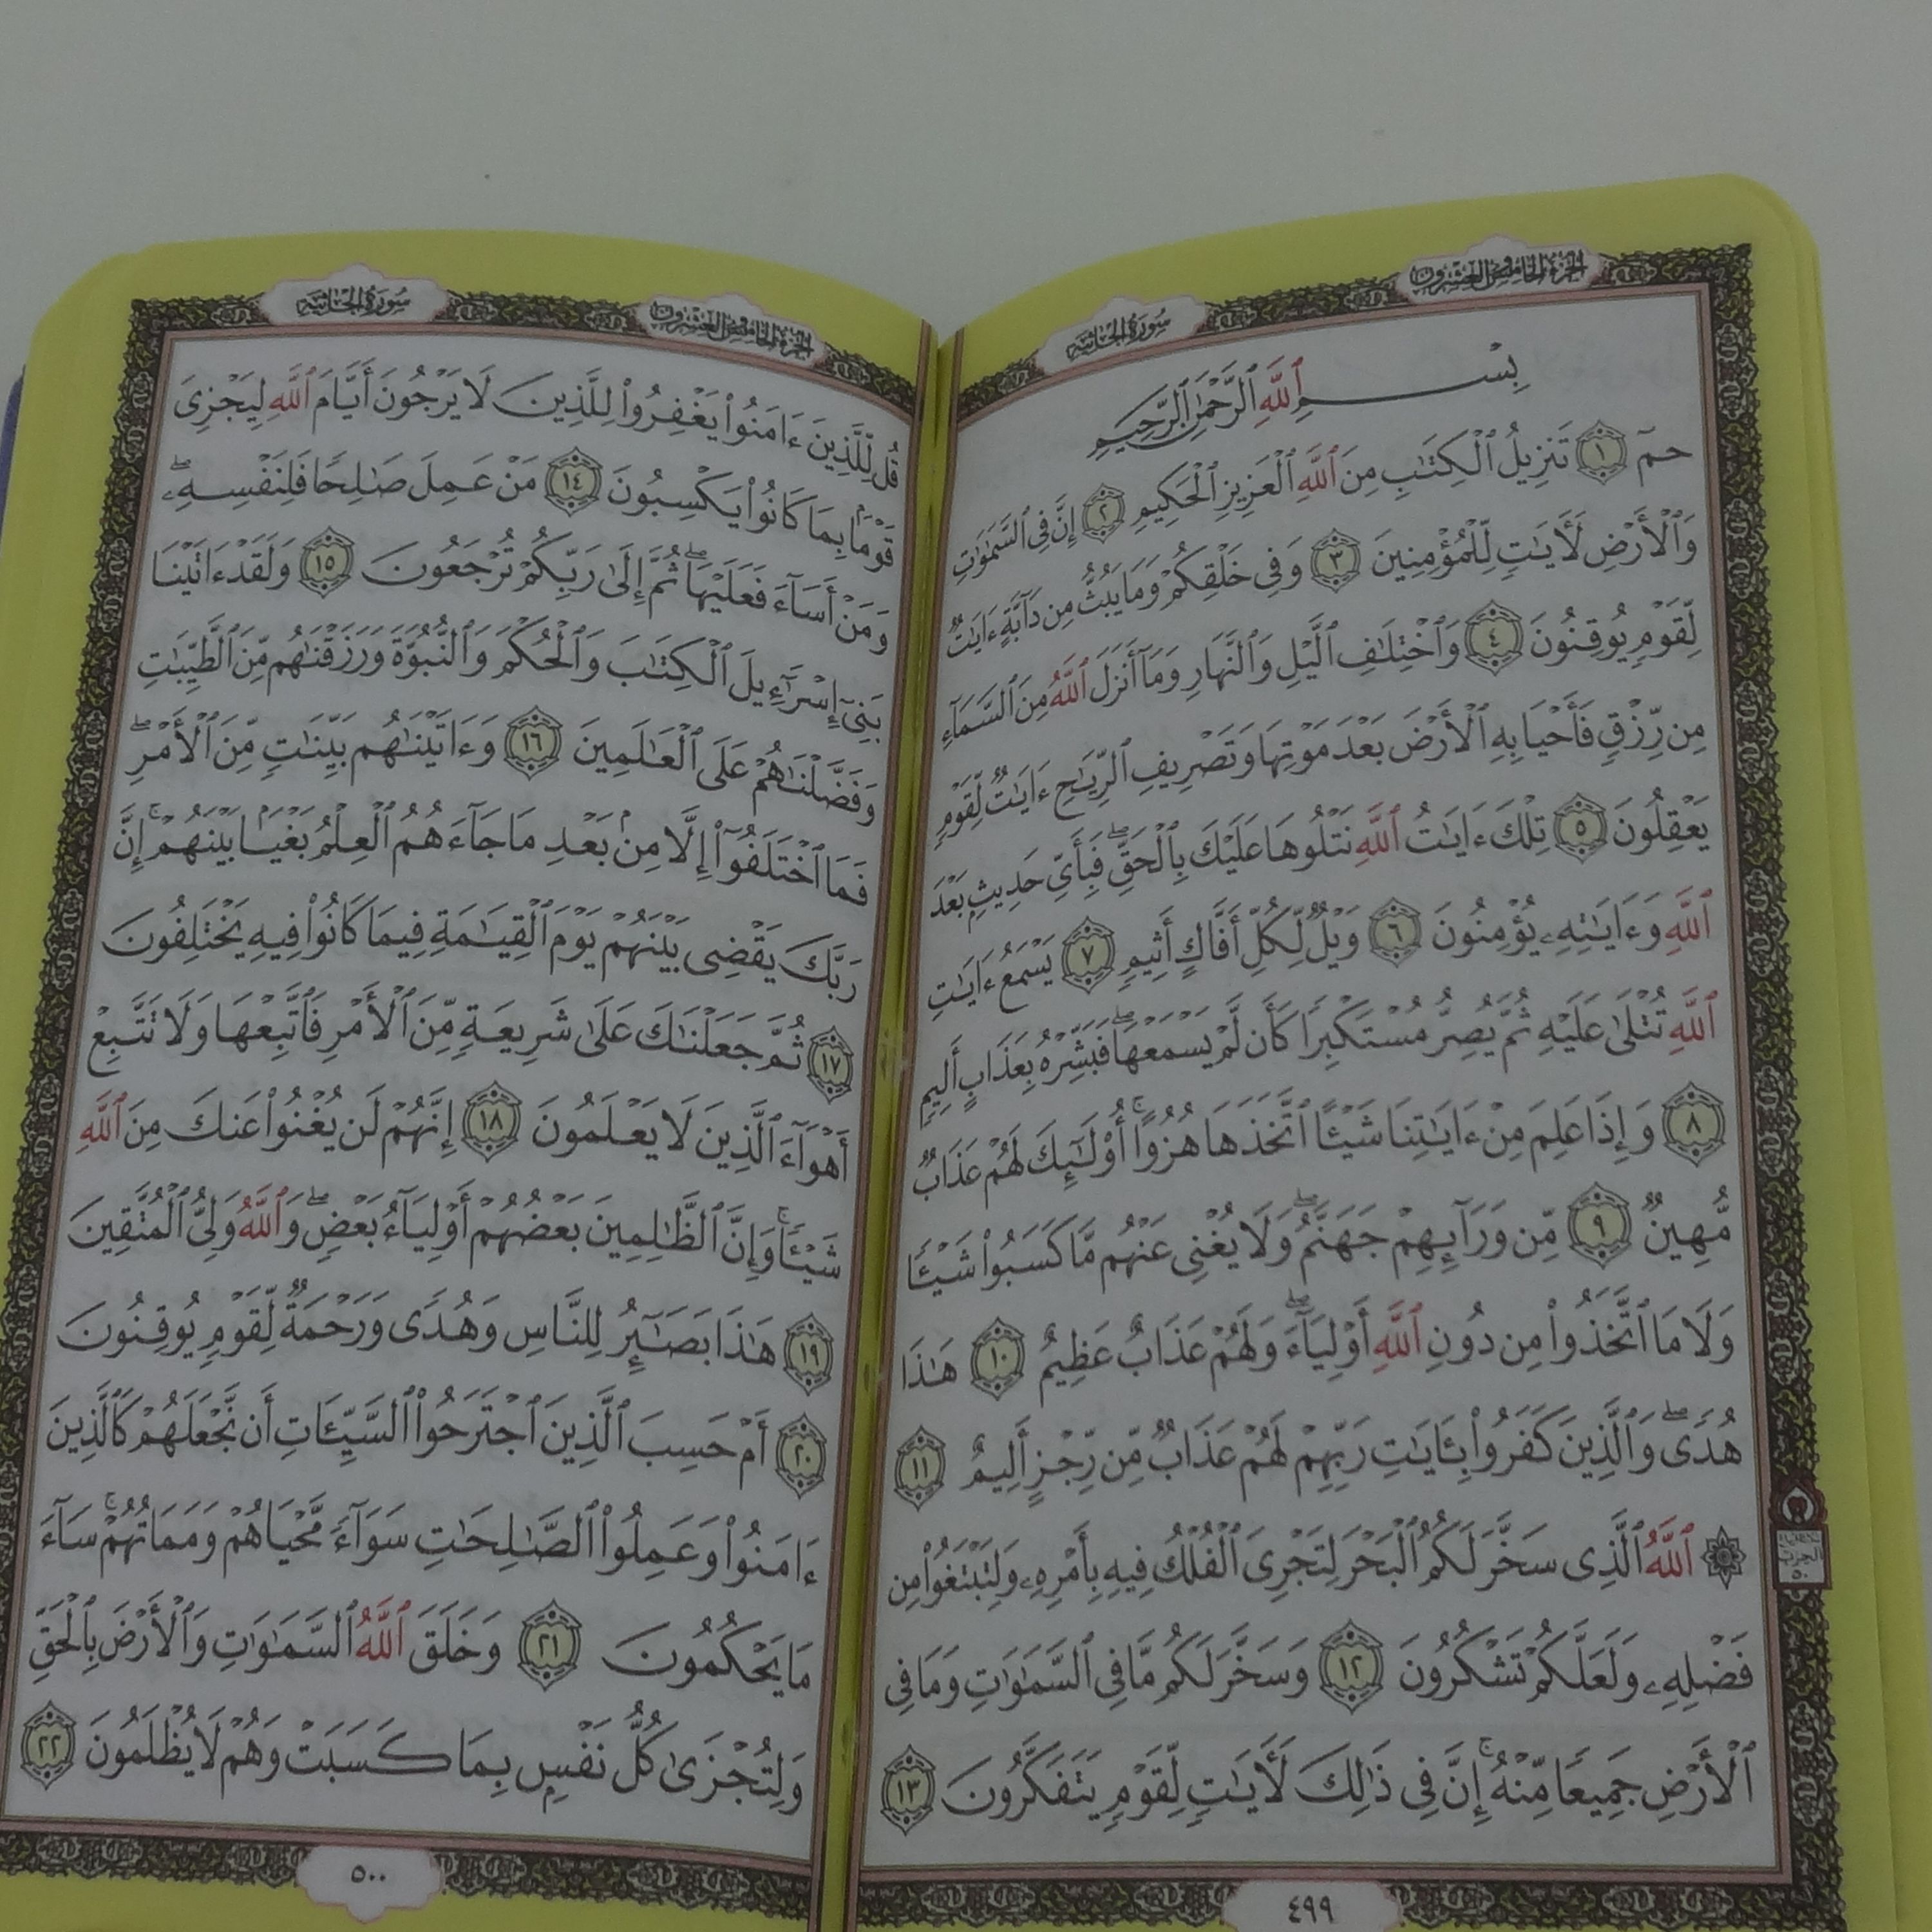 الجزء الخامس والعشرون
سورة الجاثية
بِسْمِ ٱللَّهِ ٱلرَّحْمَٰنِ ٱلرَّحِيمِ
حمٓ ١ تَنزِيلُ ٱلْكِتَٰبِ مِنَ ٱللَّهِ ٱلْعَزِيزِ ٱلْحَكِيمِ ٢ إِنَّ فِى ٱلسَّمَٰوَٰتِ
وَٱلْأَرْضِ لَـَٔايَٰتٍ لِّلْمُؤْمِنِينَ ٣ وَفِى خَلْقِكُمْ وَمَا يَبُثُّ مِن دَآبَّةٍ ءَايَٰتٌ
لِّقَوْمٍ يُوقِنُونَ ٤ وَٱخْتِلَٰفِ ٱلَّيْلِ وَٱلنَّهَارِ وَمَآ أَنزَلَ ٱللَّهُ مِنَ ٱلسَّمَآءِ
مِن رِّزْقٍ فَأَحْيَا بِهِ ٱلْأَرْضَ بَعْدَ مَوْتِهَا وَتَصْرِيفِ ٱلرِّيَٰحِ ءَايَٰتٌ لِّقَوْمٍ
يَعْقِلُونَ ٥ تِلْكَ ءَايَٰتُ ٱللَّهِ نَتْلُوهَا عَلَيْكَ بِٱلْحَقِّۖ فَبِأَىِّ حَدِيثٍۭ بَعْدَ
ٱللَّهِ وَءَايَٰتِهِۦ يُؤْمِنُونَ ٦ وَيْلٌ لِّكُلِّ أَفَّاكٍ أَثِيمٍ ٧ يَسْمَعُ ءَايَٰتِ
ٱللَّهِ تُتْلَىٰ عَلَيْهِ ثُمَّ يُصِرُّ مُسْتَكْبِرًا كَأَن لَّمْ يَسْمَعْهَاۖ فَبَشِّرْهُ بِعَذَابٍ أَلِيمٍ
٨ وَإِذَا عَلِمَ مِنْ ءَايَٰتِنَا شَيْـًٔا ٱتَّخَذَهَا هُزُوًاۚ أُو۟لَٰٓئِكَ لَهُمْ عَذَابٌ
مُّهِينٌ ٩ مِّن وَرَآئِهِمْ جَهَنَّمُۖ وَلَا يُغْنِى عَنْهُم مَّا كَسَبُوا۟ شَيْـًٔا
وَلَا مَا ٱتَّخَذُوا۟ مِن دُونِ ٱللَّهِ أَوْلِيَآءَۖ وَلَهُمْ عَذَابٌ عَظِيمٌ ١٠ هَٰذَا
هُدًىۖ وَٱلَّذِينَ كَفَرُوا۟ بِـَٔايَٰتِ رَبِّهِمْ لَهُمْ عَذَابٌ مِّن رِّجْزٍ أَلِيمٌ ١١
۞ ٱللَّهُ ٱلَّذِى سَخَّرَ لَكُمُ ٱلْبَحْرَ لِتَجْرِىَ ٱلْفُلْكُ فِيهِ بِأَمْرِهِۦ وَلِتَبْتَغُوا۟ مِن
فَضْلِهِۦ وَلَعَلَّكُمْ تَشْكُرُونَ ١٢ وَسَخَّرَ لَكُم مَّا فِى ٱلسَّمَٰوَٰتِ وَمَا فِى
ٱلْأَرْضِ جَمِيعًا مِّنْهُۚ إِنَّ فِى ذَٰلِكَ لَـَٔايَٰتٍ لِّقَوْمٍ يَتَفَكَّرُونَ ١٣
٤٩٩
الجزء الخامس والعشرون
سورة الجاثية
قُل لِّلَّذِينَ ءَامَنُوا۟ يَغْفِرُوا۟ لِلَّذِينَ لَا يَرْجُونَ أَيَّامَ ٱللَّهِ لِيَجْزِىَ
قَوْمًۢا بِمَا كَانُوا۟ يَكْسِبُونَ ١٤ مَنْ عَمِلَ صَٰلِحًا فَلِنَفْسِهِۦۖ
وَمَنْ أَسَآءَ فَعَلَيْهَاۖ ثُمَّ إِلَىٰ رَبِّكُمْ تُرْجَعُونَ ١٥ وَلَقَدْ ءَاتَيْنَا
بَنِىٓ إِسْرَٰٓءِيلَ ٱلْكِتَٰبَ وَٱلْحُكْمَ وَٱلنُّبُوَّةَ وَرَزَقْنَٰهُم مِّنَ ٱلطَّيِّبَٰتِ
وَفَضَّلْنَٰهُمْ عَلَى ٱلْعَٰلَمِينَ ١٦ وَءَاتَيْنَٰهُم بَيِّنَٰتٍ مِّنَ ٱلْأَمْرِۖ
فَمَا ٱخْتَلَفُوٓا۟ إِلَّا مِنۢ بَعْدِ مَا جَآءَهُمُ ٱلْعِلْمُ بَغْيًۢا بَيْنَهُمْۚ إِنَّ
رَبَّكَ يَقْضِى بَيْنَهُمْ يَوْمَ ٱلْقِيَٰمَةِ فِيمَا كَانُوا۟ فِيهِ يَخْتَلِفُونَ
١٧ ثُمَّ جَعَلْنَٰكَ عَلَىٰ شَرِيعَةٍ مِّنَ ٱلْأَمْرِ فَٱتَّبِعْهَا وَلَا تَتَّبِعْ
أَهْوَآءَ ٱلَّذِينَ لَا يَعْلَمُونَ ١٨ إِنَّهُمْ لَن يُغْنُوا۟ عَنكَ مِنَ ٱللَّهِ
شَيْـًٔاۚ وَإِنَّ ٱلظَّٰلِمِينَ بَعْضُهُمْ أَوْلِيَآءُ بَعْضٍۖ وَٱللَّهُ وَلِىُّ ٱلْمُتَّقِينَ
١٩ هَٰذَا بَصَٰٓئِرُ لِلنَّاسِ وَهُدًى وَرَحْمَةٌ لِّقَوْمٍ يُوقِنُونَ
٢٠ أَمْ حَسِبَ ٱلَّذِينَ ٱجْتَرَحُوا۟ ٱلسَّيِّـَٔاتِ أَن نَّجْعَلَهُمْ كَٱلَّذِينَ
ءَامَنُوا۟ وَعَمِلُوا۟ ٱلصَّٰلِحَٰتِ سَوَآءً مَّحْيَاهُمْ وَمَمَاتُهُمْۚ سَآءَ
مَا يَحْكُمُونَ ٢١ وَخَلَقَ ٱللَّهُ ٱلسَّمَٰوَٰتِ وَٱلْأَرْضَ بِٱلْحَقِّ
وَلِتُجْزَىٰ كُلُّ نَفْسٍۭ بِمَا كَسَبَتْ وَهُمْ لَا يُظْلَمُونَ ٢٢
٥٠٠